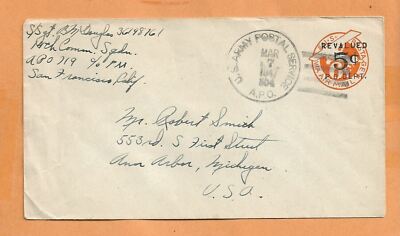 S/Sgt. B M Douglas 36198161
14th Comm. Sqdn.
APO 719 % P.M.
San Francisco Calif.
U.S. ARMY POSTAL SERVICE
MAR
7
1947
A.P.O.
REVALUED
5¢
P.O. DEPT.
Mr. Robert Smith
553rd. S First Street
Ann Arbor, Michigan
U.S.A.